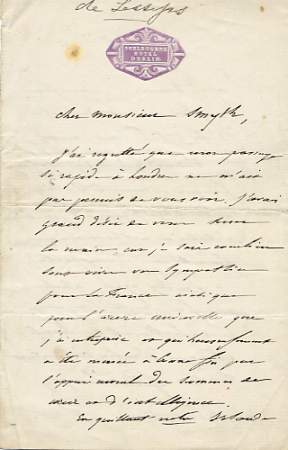 de Lesseps
SHELBOURNE
HOTEL
DUBLIN
cher Monsieur Smyth,
J'ai regretté que mon passage
si rapide à Londres ne m'ait
pas permis de vous voir. J'avais
grand désir de vous serrer
la main, car je sais combien
sont vives vos sympathies
pour la France
pour l'œuvre universelle que
j'ai entreprise et qui heureusement
a été menée à bonne fin, par
l'appui moral des hommes de
cœur et d'intelligence.
En quittant votre